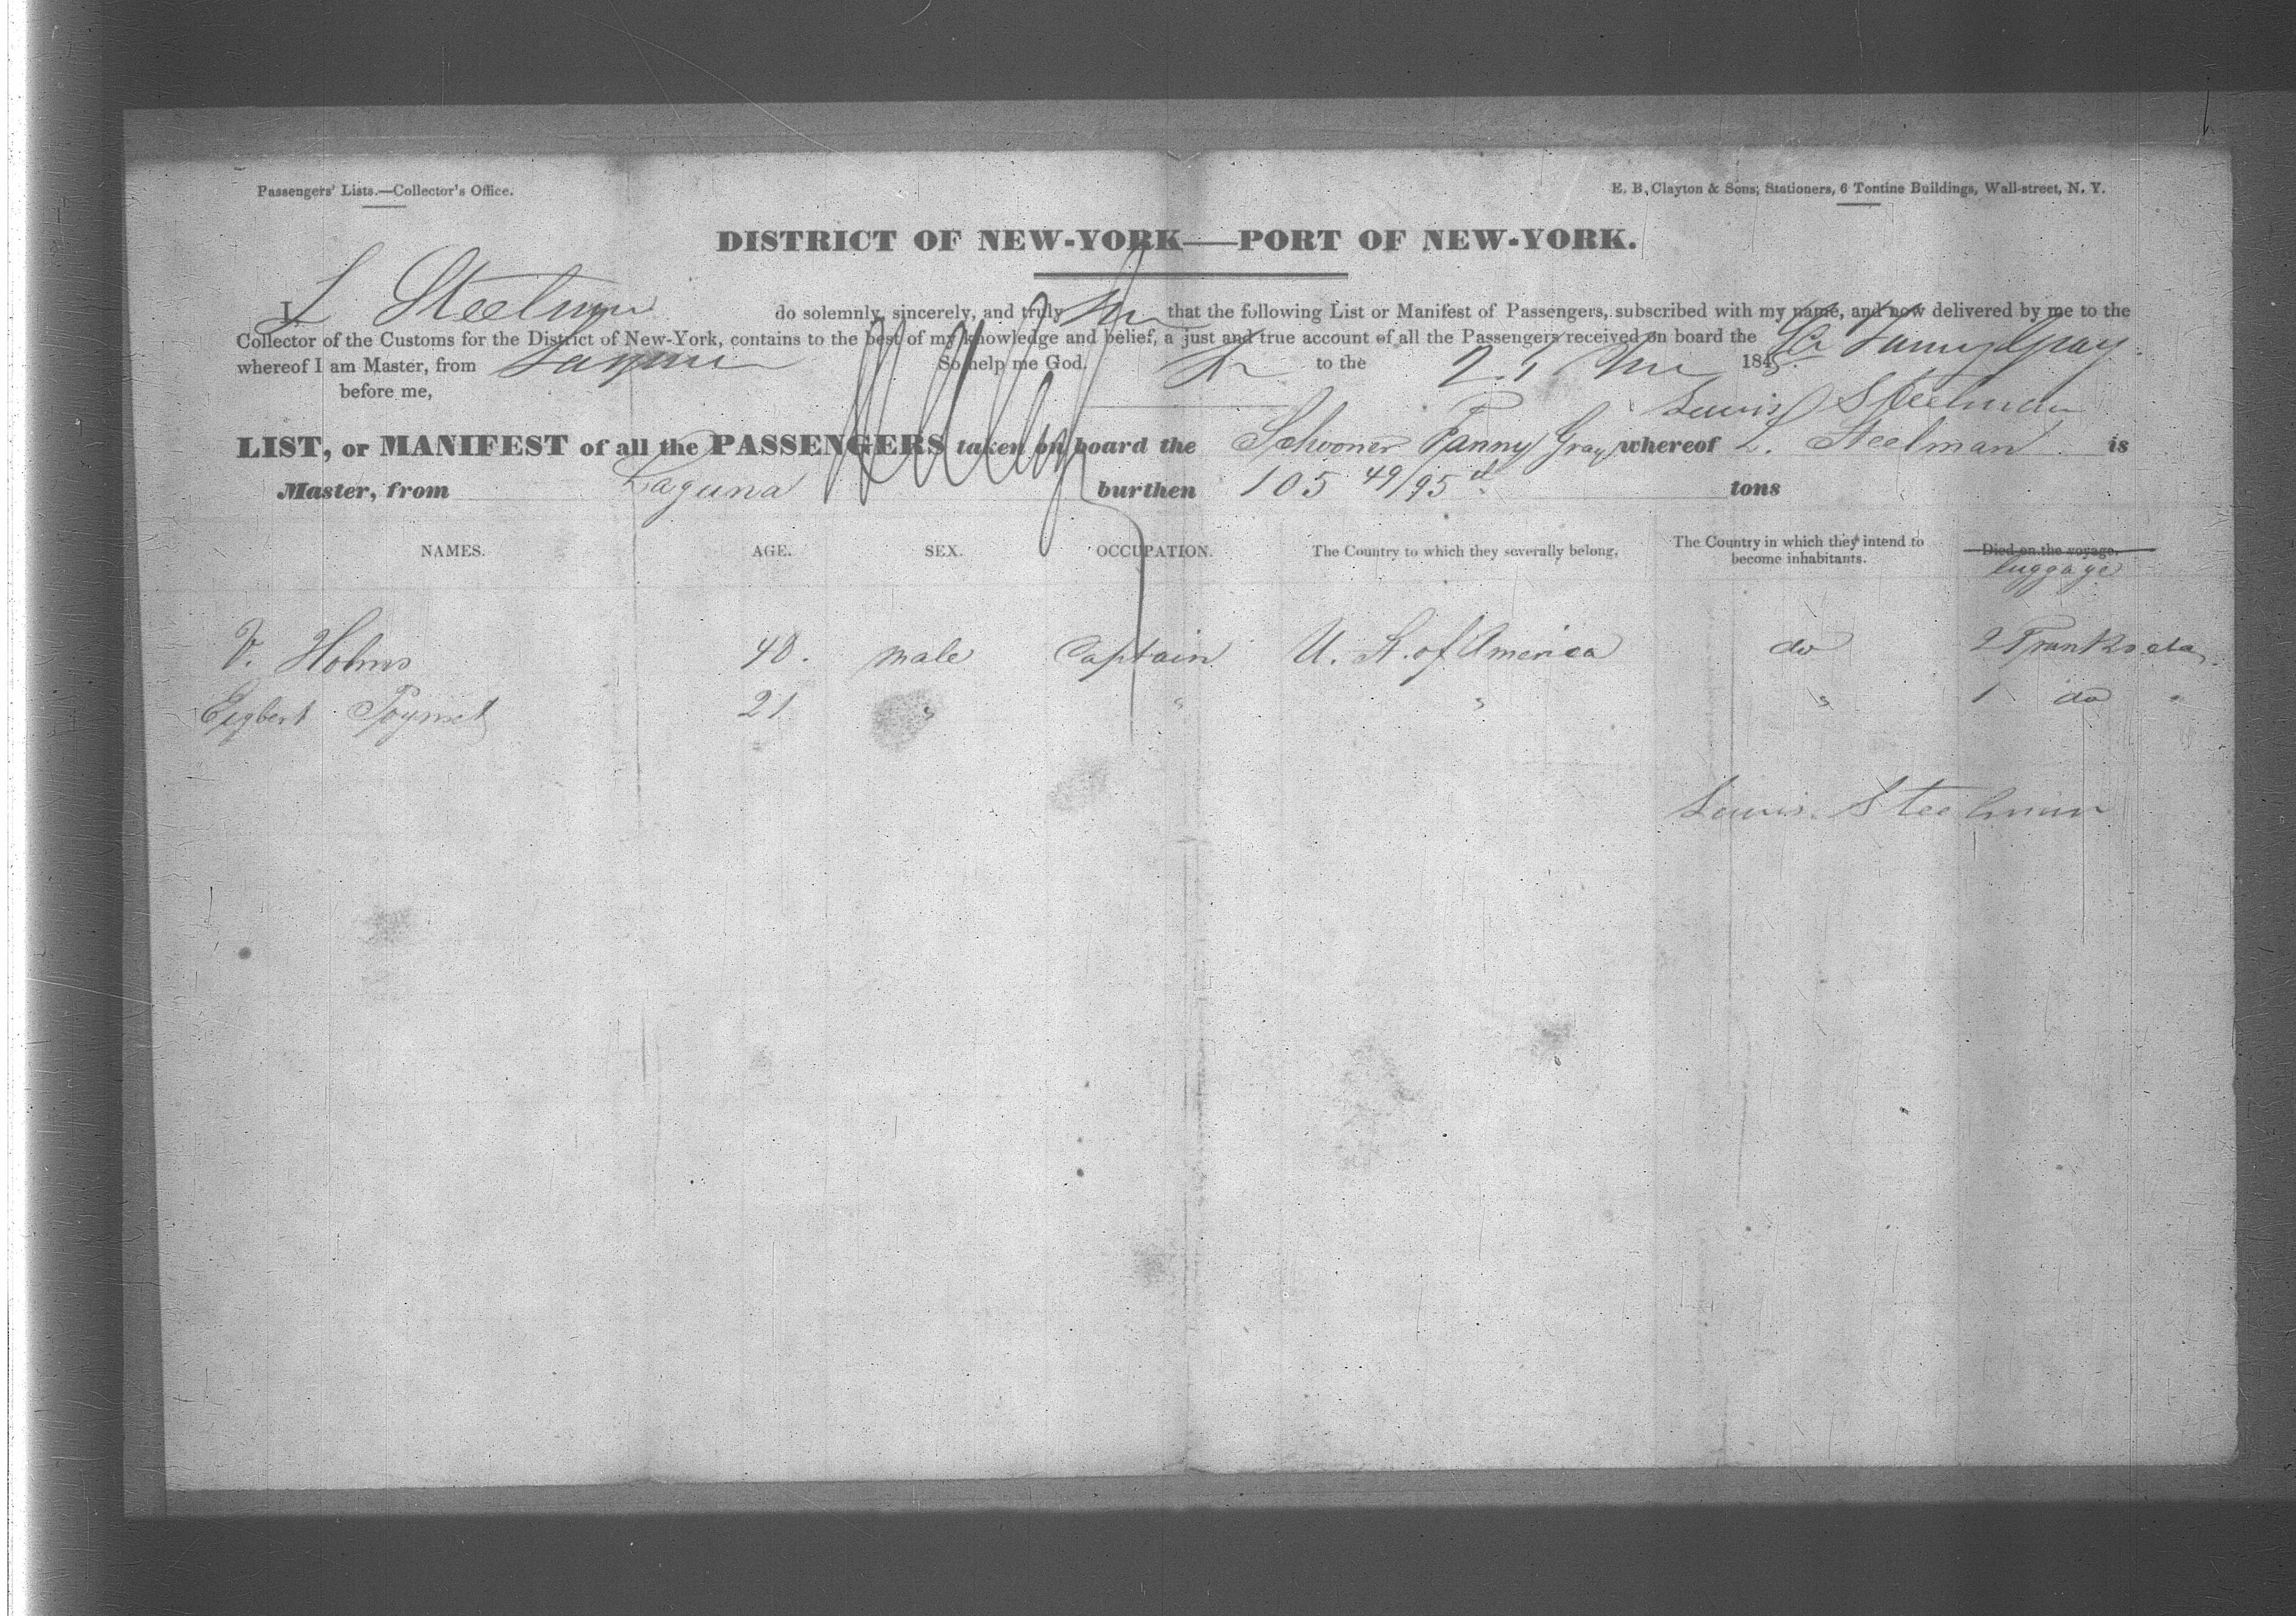 Passengers' Lists.—Collector's Office.
E. B. Clayton & Sons, Stationers, 6 Tontine Buildings, Wall-street, N. Y.
DISTRICT OF NEW-YORK—PORT OF NEW-YORK.
I, L Steelman do solemnly, sincerely, and truly that the following List or Manifest of Passengers, subscribed with my name, and now delivered by me to the
Collector of the Customs for the District of New-York, contains to the best of my knowledge and belief, a just and true account of all the Passengers received on board the Sc Fanny Gray
whereof I am Master, from Laguna So help me God. to the 184
before me, Lewis Steelman
LIST, or MANIFEST of all the PASSENGERS taken on board the Schooner Fanny Gray whereof L. Steelman is
Master, from Laguna burthen 105 49/95 d tons
NAMES. AGE. SEX. OCCUPATION. The Country to which they severally belong. The Country in which they intend to become inhabitants. Died on the voyage.
luggage
V. Holms 40. male Captain U. St. of America do 2 Trunks
Egbert 21 " " " " 1 do "
Lewis Steelman